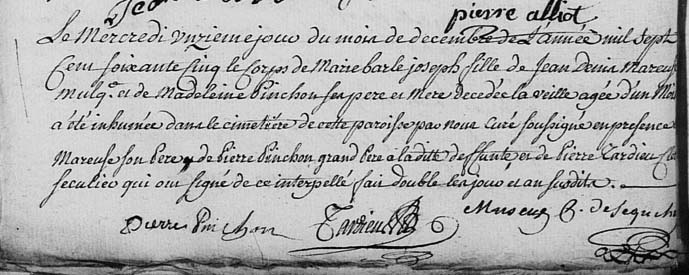 pierre alliot
Le Mercredi unzieme jour du mois de decembre de L'année mil sept
Cent soixante Cinq le Corps de Marie barbe joseph fille de Jean Denis Mareuse
mulq.er et de Madeleine Pinchon ses pere et Mere decedée la veille agée d'un Mois
a été inhumée dans le cimetiere de cette paroisse par nous Curé soussigné en presence
Mareuse son Pere, de Pierre Pinchon grand Pere a la ditte deffunte et de Pierre Tardieu Clerc
seculier qui ont signé de ce interpellé fai double les jour et an susdits.
pierre Pinchon Tardieu